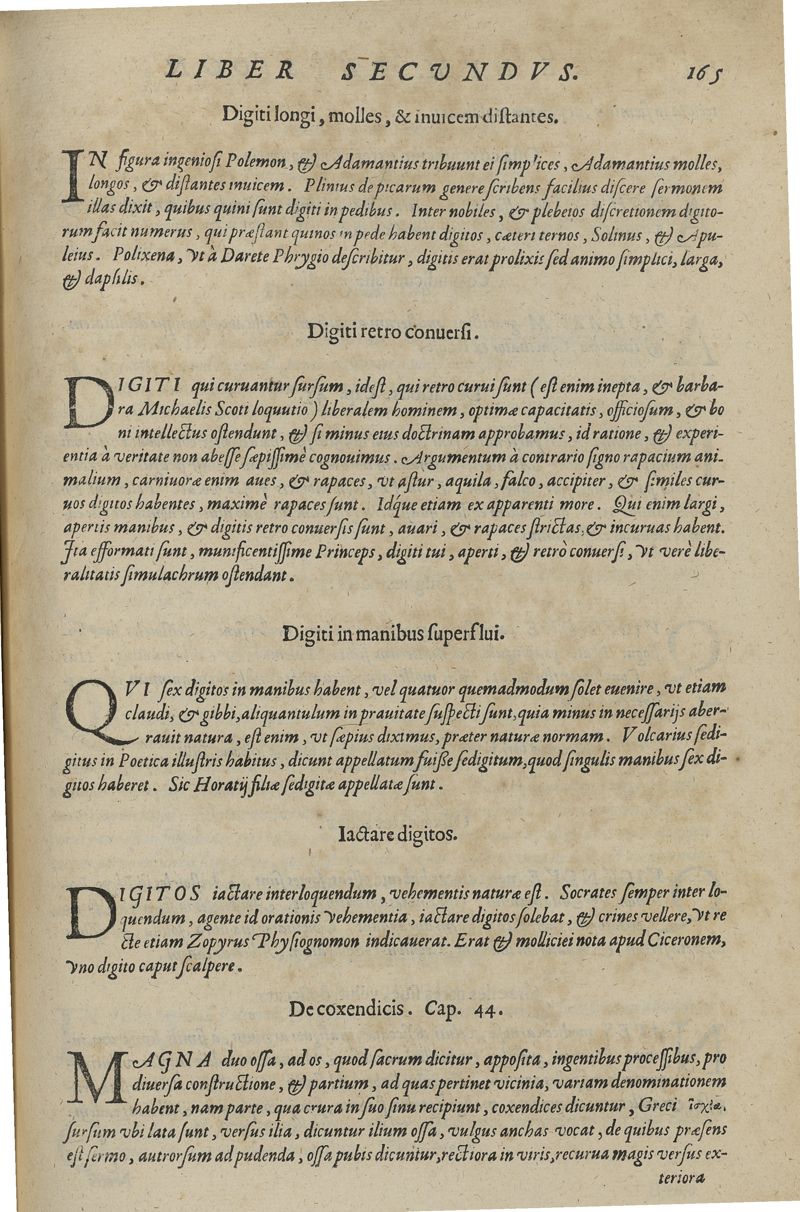 LIBER SECVNDVS. 165
Digiti longi, molles, & inuicem distantes.
IN figura ingeniosi Polemon, & Adamantius tribuunt ei simplices, Adamantius molles,
longos, & distantes inuicem. Plinius de picarum genere scribens facilius discere sermonem
illas dixit, quibus quini sunt digiti in pedibus. Inter nobiles, & plebeios discretionem digito-
rum facit numerus, qui præstant quinos in pede habent digitos, cæteri ternos, Solinus, & Apu-
leius. Polixena, vt à Darete Phrygio describitur, digitis erat prolixis sed animo simplici, larga,
& dapsilis.
Digiti retro conuersi.
DIGITI qui curuantur sursum, idest, qui retro curui sunt (est enim inepta, & barba-
ra Michaelis Scoti loquutio) liberalem hominem, optimæ capacitatis, officiosum, & bo
ni intellectus ostendunt, & si minus eius doctrinam approbamus, id ratione, & experi-
entia à veritate non abesse sæpissimè cognouimus. Argumentum à contrario signo rapacium ani-
malium, carniuoræ enim aues, & rapaces, vt astur, aquila, falco, accipiter, & similes cur-
uos digitos habentes, maximè rapaces sunt. Idq́ue etiam ex apparenti more. Qui enim largi,
apertis manibus, & digitis retro conuersis sunt, auari, & rapaces strictas, & incuruas habent.
Ita efformati sunt, munificentissime Princeps, digiti tui, aperti, & retrò conuersi, vt verè libe-
ralitatis simulachrum ostendant.
Digiti in manibus superflui.
QVI sex digitos in manibus habent, vel quatuor quemadmodum solet euenire, vt etiam
claudi, & gibbi, aliquantulum in prauitate suspecti sunt, quia minus in necessarijs aber-
rauit natura, est enim, vt sæpius diximus, præter naturæ normam. Volcarius sedi-
gitus in Poetica illustris habitus, dicunt appellatum fuisse sedigitum, quod singulis manibus sex di-
gitos haberet. Sic Horatij filiæ sedigitæ appellatæ sunt.
Iactare digitos.
DIGITOS iactare inter loquendum, vehementis naturæ est. Socrates semper inter lo-
quendum, agente id orationis vehementia, iactare digitos solebat, & crines vellere, vt re
cte etiam Zopyrus Physiognomon indicauerat. Erat & molliciei nota apud Ciceronem,
vno digito caput scalpere.
De coxendicis. Cap. 44.
MAGNA duo ossa, ad os, quod sacrum dicitur, apposita, ingentibus processibus, pro
diuersa constructione, & partium, ad quas pertinet vicinia, variam denominationem
habent, nam parte, qua crura in suo sinu recipiunt, coxendices dicuntur, Greci ἰσχία,
sursum vbi lata sunt, versus ilia, dicuntur ilium ossa, vulgus anchas vocat, de quibus præsens
est sermo, autrorsum ad pudenda, ossa pubis dicuntur, rectiora in viris, recurua magis versus ex-
teriora